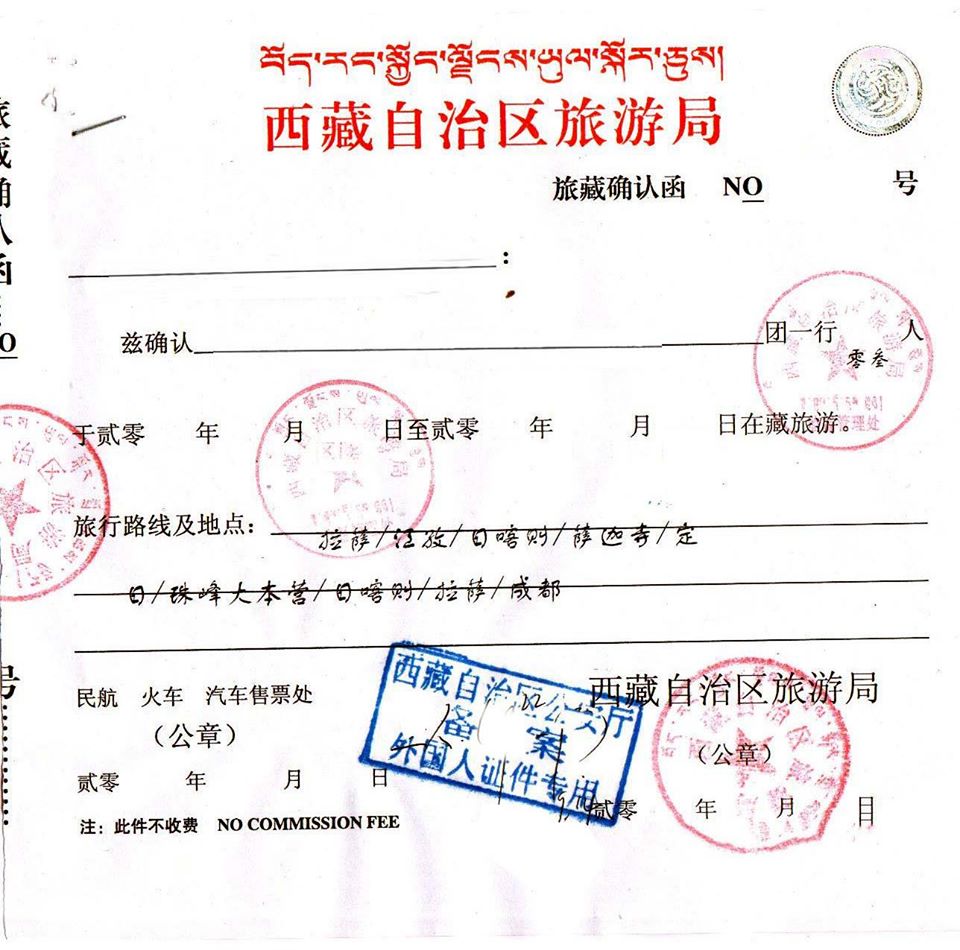 བོད་རང་སྐྱོང་ལྗོངས་ཡུལ་སྐོར་ཅུས།
西藏自治区旅游局
旅藏确认函 NO 号
:
兹确认 团一行 人
零叁
于贰零 年 月 日至贰零 年 月 日在藏旅游。
旅行路线及地点: 拉萨/江孜/日喀则/萨迦寺/定
日/珠峰大本营/日喀则/拉萨/成都
民航 火车 汽车售票处
(公章)
贰零 年 月 日
注: 此件不收费 NO COMMISSION FEE
西藏自治区公安厅
备案
外国人证件专用
西藏自治区旅游局
(公章)
贰零 年 月 日